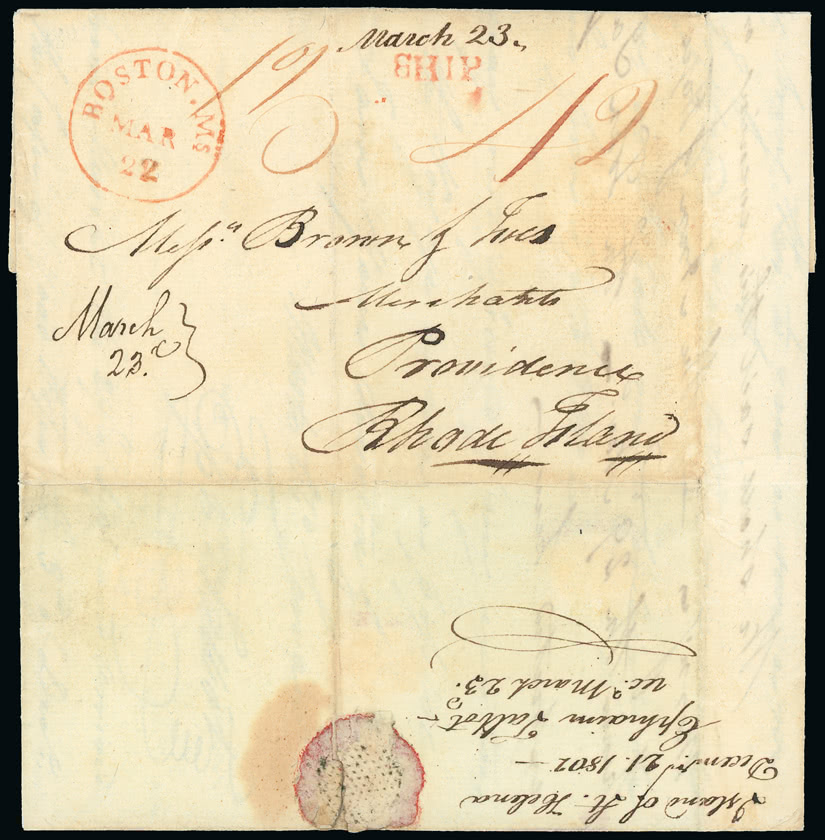 March 23,
SHIP
BOSTON. Ms
MAR
22
12
Messrs Brown & Ives
Merchants
March
23.d
Providence
Rhode Island
Island of St. Helena
Decembr 21. 1802 —
Ephraim Talbot —
recd March 23.